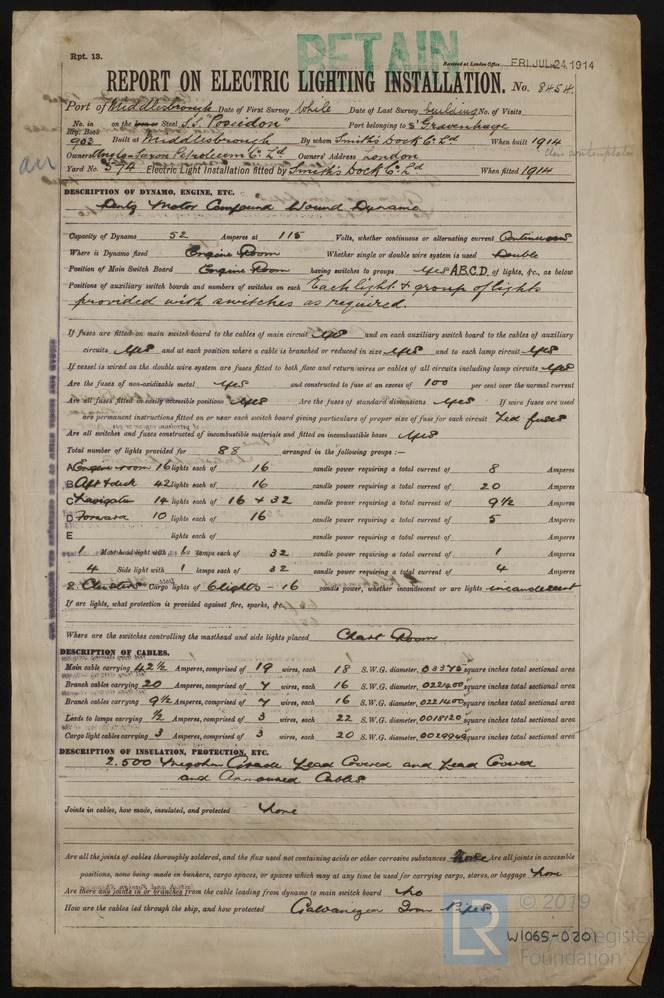 RETAIN
Rpt. 13.
Received at London Office FRI. JUL. 24. 1914
REPORT ON ELECTRIC LIGHTING INSTALLATION. No. 8454.
Port of Middlesbrough Date of First Survey While Date of Last Survey building No. of Visits
No. in Reg. Book on the Iron or Steel S.S. "Poseidon" Port belonging to s' Gravenhage
903 Built at Middlesbrough By whom Smith's Dock Co. Ld When built 1914
class contemplated
Owners Anglo-Saxon Petroleum Co. Ld Owners' Address London
Yard No. 574 Electric Light Installation fitted by Smith's Dock Co. Ld When fitted 1914
DESCRIPTION OF DYNAMO, ENGINE, ETC.
Motor Compound Wound Dynamo
Capacity of Dynamo 52 Amperes at 115 Volts, whether continuous or alternating current Continuous
Where is Dynamo fixed Engine Room Whether single or double wire system is used Double
Position of Main Switch Board Engine Room having switches to groups yes A.B.C.D. of lights, &c., as below
Positions of auxiliary switch boards and numbers of switches on each Each light & group of lights
provided with switches as required.
If fuses are fitted on main switch board to the cables of main circuit yes and on each auxiliary switch board to the cables of auxiliary
circuits yes and at each position where a cable is branched or reduced in size yes and to each lamp circuit yes
If vessel is wired on the double wire system are fuses fitted to both flow and return wires or cables of all circuits including lamp circuits yes
Are the fuses of non-oxidizable metal yes and constructed to fuse at an excess of 100 per cent over the normal current
Are all fuses fitted in easily accessible positions yes Are the fuses of standard dimensions yes If wire fuses are used
are permanent instructions fitted on or near each switch board giving particulars of proper size of fuse for each circuit Zed fuses
Are all switches and fuses constructed of incombustible materials and fitted on incombustible bases yes
Total number of lights provided for 88 arranged in the following groups :—
A Engine room 16 lights each of 16 candle power requiring a total current of 8 Amperes
B Aft & deck 42 lights each of 16 candle power requiring a total current of 20 Amperes
C Navigation 14 lights each of 16 + 32 candle power requiring a total current of 9½ Amperes
D Forward 10 lights each of 16 candle power requiring a total current of 5 Amperes
E lights each of candle power requiring a total current of Amperes
1 Mast head light with 1 lamps each of 32 candle power requiring a total current of 1 Amperes
4 Side light with 1 lamps each of 32 candle power requiring a total current of 4 Amperes
2 Clusters Cargo lights of 6 lights - 16 candle power, whether incandescent or arc lights incandescent
If arc lights, what protection is provided against fire, sparks, &c.
Where are the switches controlling the masthead and side lights placed Chart Room
DESCRIPTION OF CABLES.
Main cable carrying 42½ Amperes, comprised of 19 wires, each 18 S.W.G. diameter, .03375 square inches total sectional area
Branch cables carrying 20 Amperes, comprised of 7 wires, each 16 S.W.G. diameter, .0221400 square inches total sectional area
Branch cables carrying 9½ Amperes, comprised of 7 wires, each 16 S.W.G. diameter, .0221400 square inches total sectional area
Leads to lamps carrying ½ Amperes, comprised of 3 wires, each 22 S.W.G. diameter, .0018120 square inches total sectional area
Cargo light cables carrying 3 Amperes, comprised of 3 wires, each 20 S.W.G. diameter, square inches total sectional area
DESCRIPTION OF INSULATION, PROTECTION, ETC.
2.500 Megohm Grade Lead Covered and Lead Covered
and Armoured Cables
Joints in cables, how made, insulated, and protected None
Are all the joints of cables thoroughly soldered, and the flux used not containing acids or other corrosive substances None Are all joints in accessible
positions, none being made in bunkers, cargo spaces, or spaces which may at any time be used for carrying cargo, stores, or baggage None
Are there any joints in or branches from the cable leading from dynamo to main switch board No
How are the cables led through the ship, and how protected Galvanized Iron Pipes
© 2019
LR Lloyd's Register
Foundation
W1065-0201